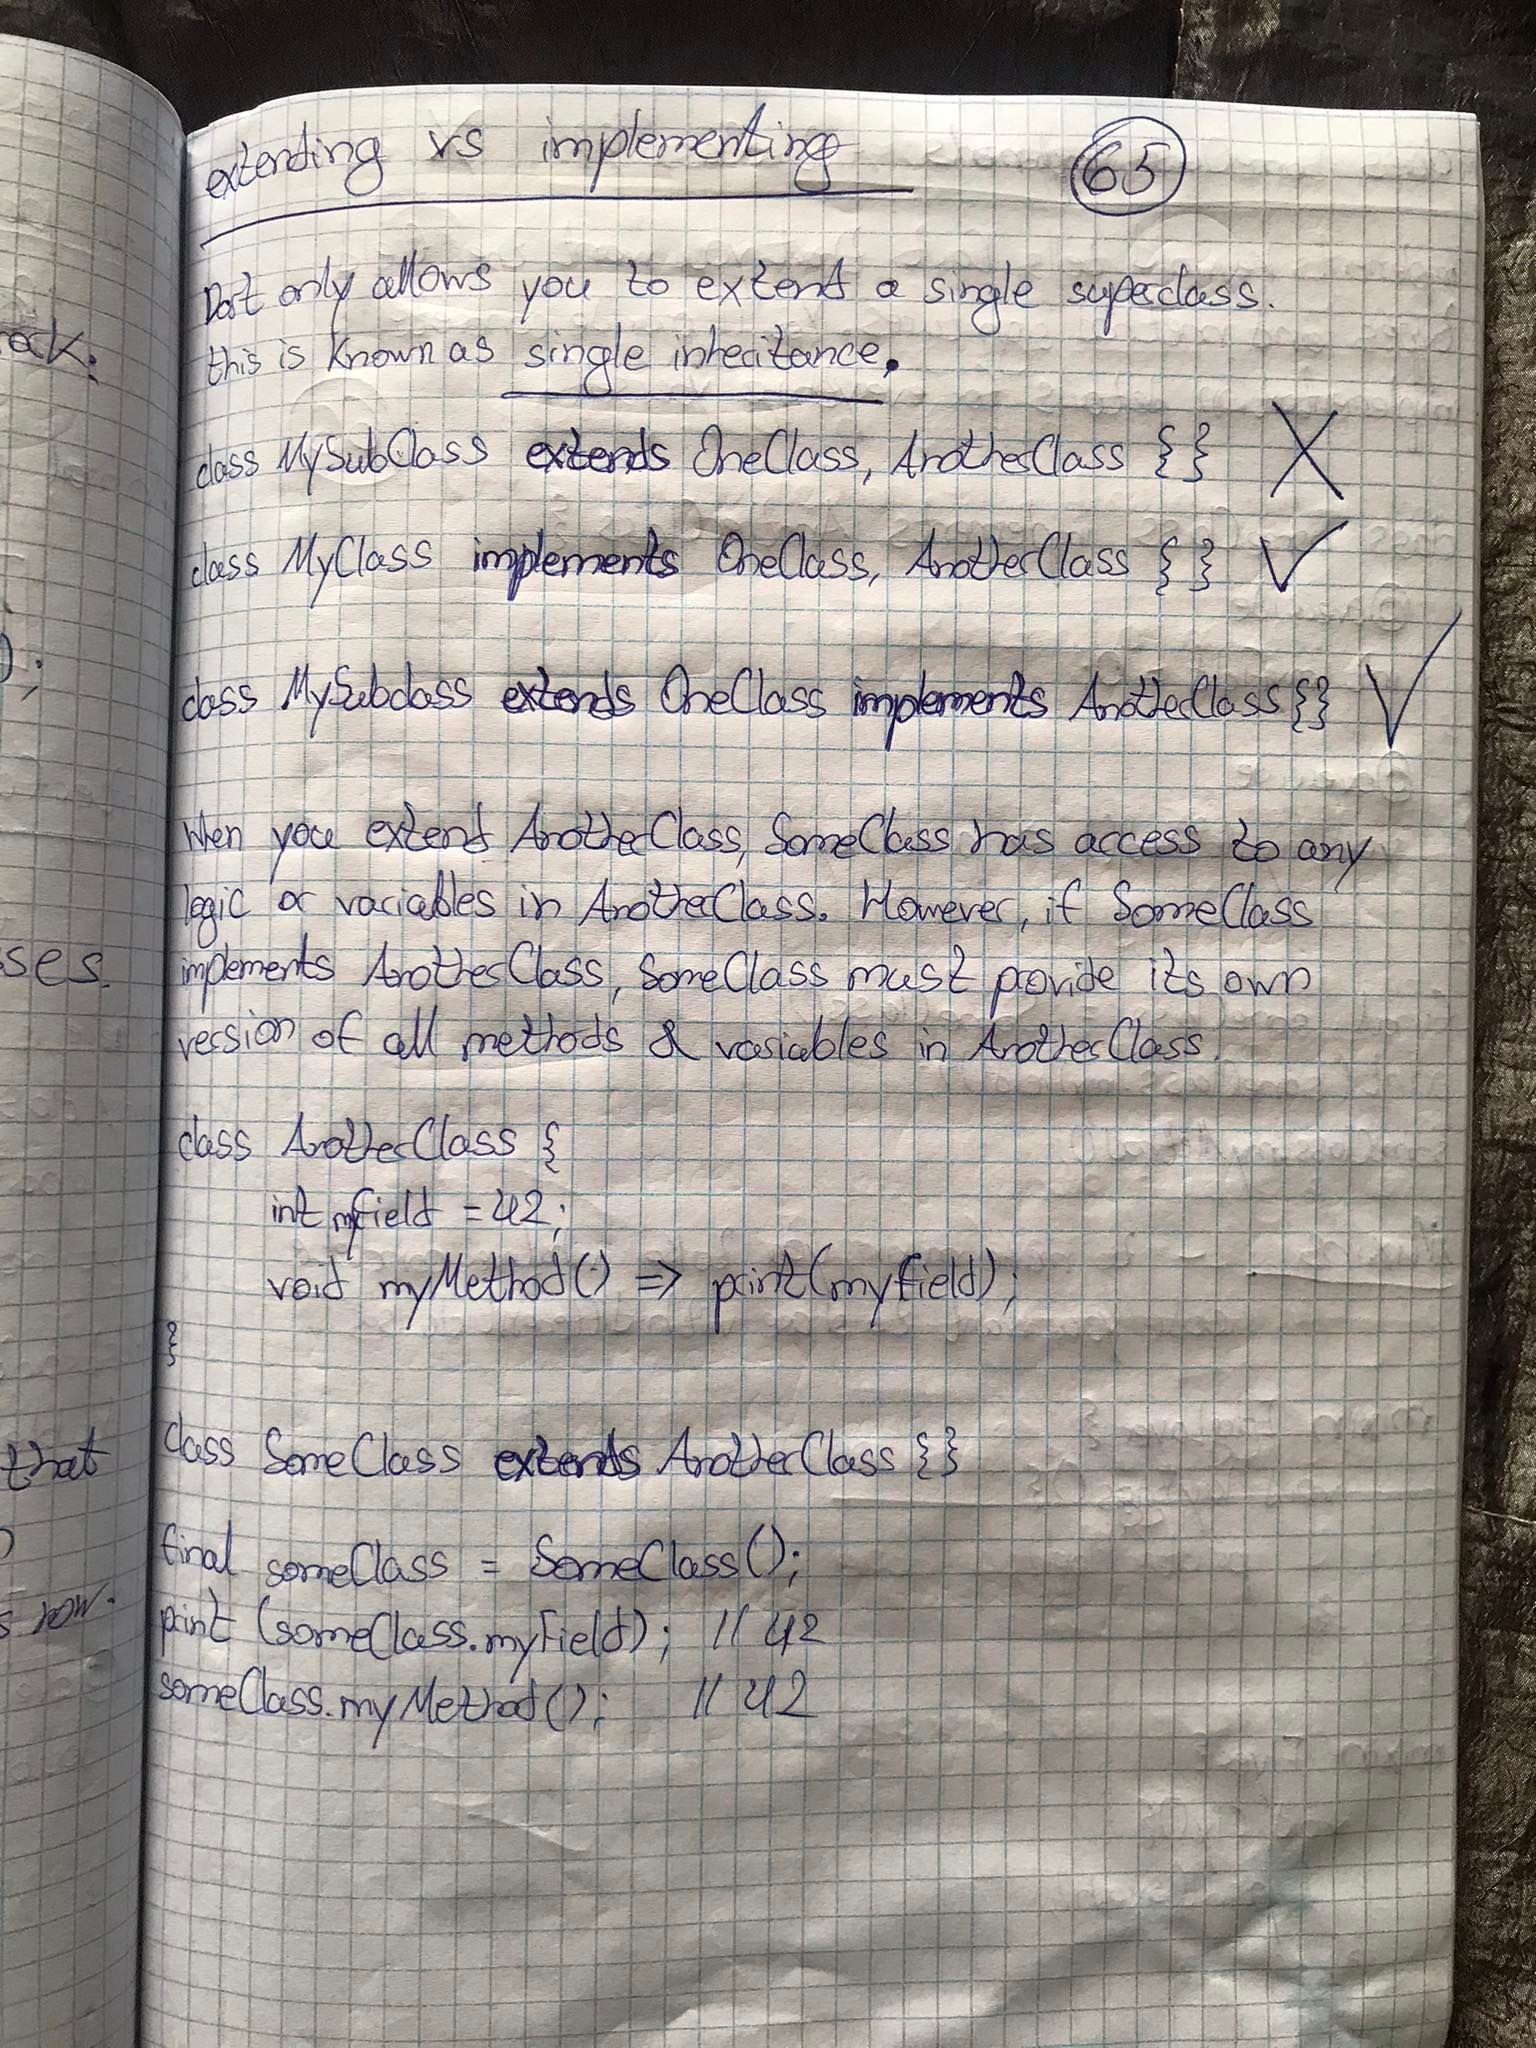 extending vs implementing
65
Dart only allows you to extend a single superclass.
this is known as single inheritance.
class MySubClass extends OneClass, AnotherClass {} X
class MyClass implements OneClass, AnotherClass { } ✓
class MySubclass extends OneClass implements AnotherClass {} ✓
When you extend AnotherClass, SomeClass has access to any
logic or variables in AnotherClass. However, if SomeClass
implements AnotherClass, SomeClass must provide its own
version of all methods & variables in AnotherClass.
class AnotherClass {
int myField = 42;
void myMethod() => print(myField);
}
class SomeClass extends AnotherClass {}
final someClass = SomeClass();
print (someClass.myField); // 42
someClass.myMethod(); // 42
);
that
row.